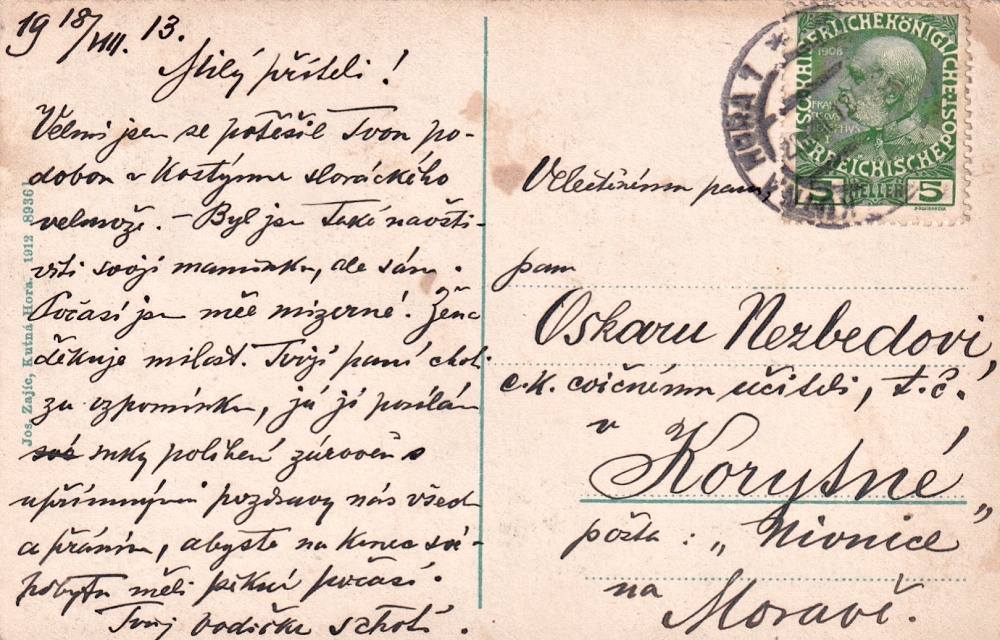 19 18/VIII. 13.
Milý příteli!
Velmi jsem se potěšil Tvou po-
dobou v Kostýmu slováckého
velmože. – Byl jsem také navští-
viti svoji maminku, ale sám.
Počasí jsem měl mizerné. Žena
děkuje milost. Tvojí paní choti
za vzpomínku, já jí posílám
ruky políbení zároveň s
upřímnými pozdravy nás všech
a přáním, abyste na konec své-
pobytu měli pěkné počasí.
Tvůj Vodička s chotí.
Jos. Zajíc, Kutná Hora. 1912 8936
Velectěnému panu
panu
Oskaru Nezbedovi,
c.k. cvičnému učiteli, t.č.
v
Korytné
pošta: „Nivnice"
na
Moravě.
KAISERLICHE KÖNIGLICHE ÖSTERREICHISCHE POST
1908
5 HELLER 5
KUTNÁ HORA 1